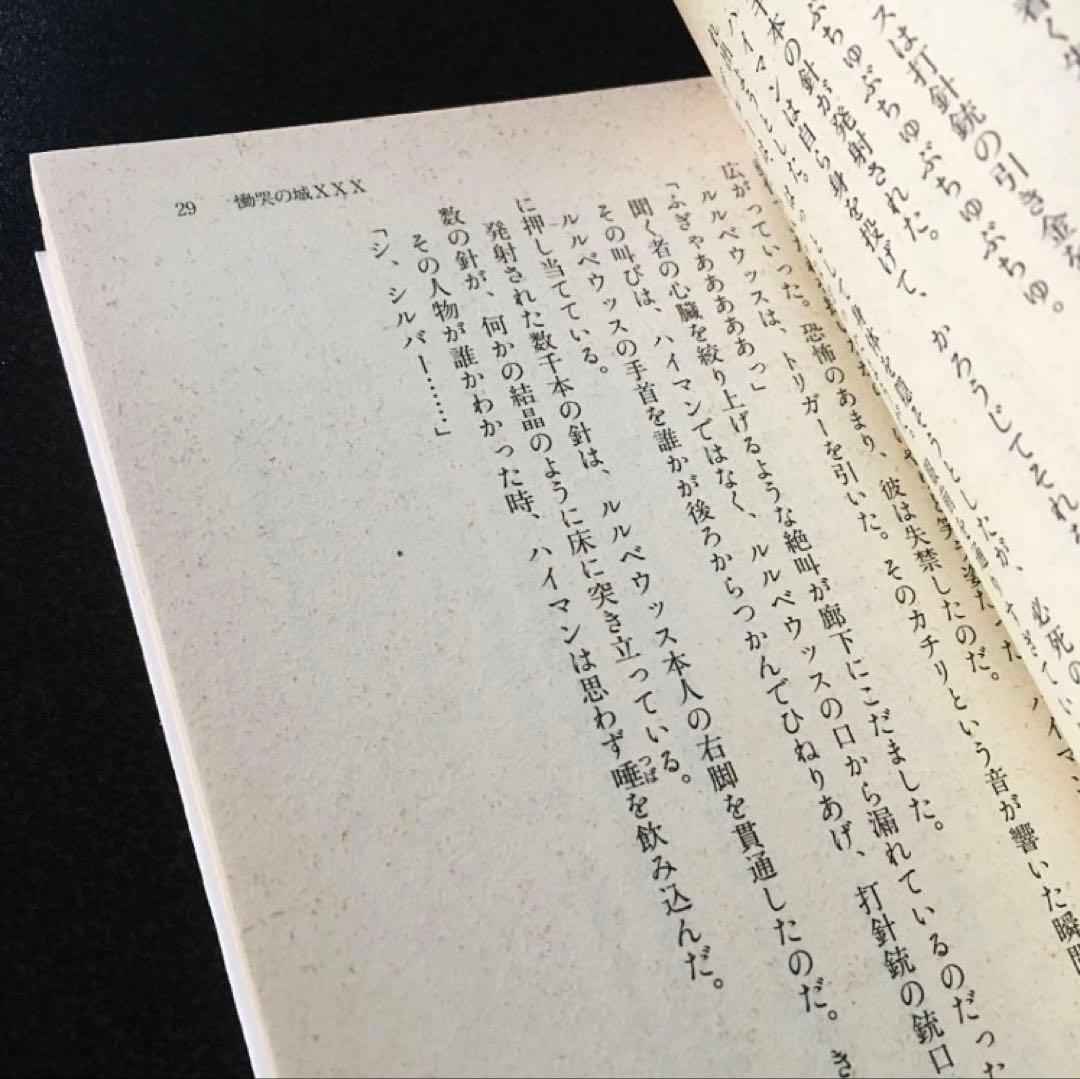 ぶちゅぶちゅぶちゅ。
スは打針銃の引き金を
千本の針が発射された。
ハイマンは自ら身を投げて、かろうじてそれ
広がっていった。恐怖のあまり、彼は失禁したのだ。
ルルベウッスは、トリガーを引いた。そのカチリという音が響いた瞬間
「ふぎゃああああっ」
聞く者の心臓を絞り上げるような絶叫が廊下にこだました。
その叫びは、ハイマンではなく、ルルベウッスの口から漏れているのだった
ルルベウッスの手首を誰かが後ろからつかんでひねりあげ、打針銃の銃口
に押し当てている。
発射された数千本の針は、ルルベウッス本人の右脚を貫通したのだ。き
数の針が、何かの結晶のように床に突き立っている。
その人物が誰かわかった時、ハイマンは思わず唾を飲み込んだ。
っぱ
「シ、シルバー……」
29 慟哭の城XXX